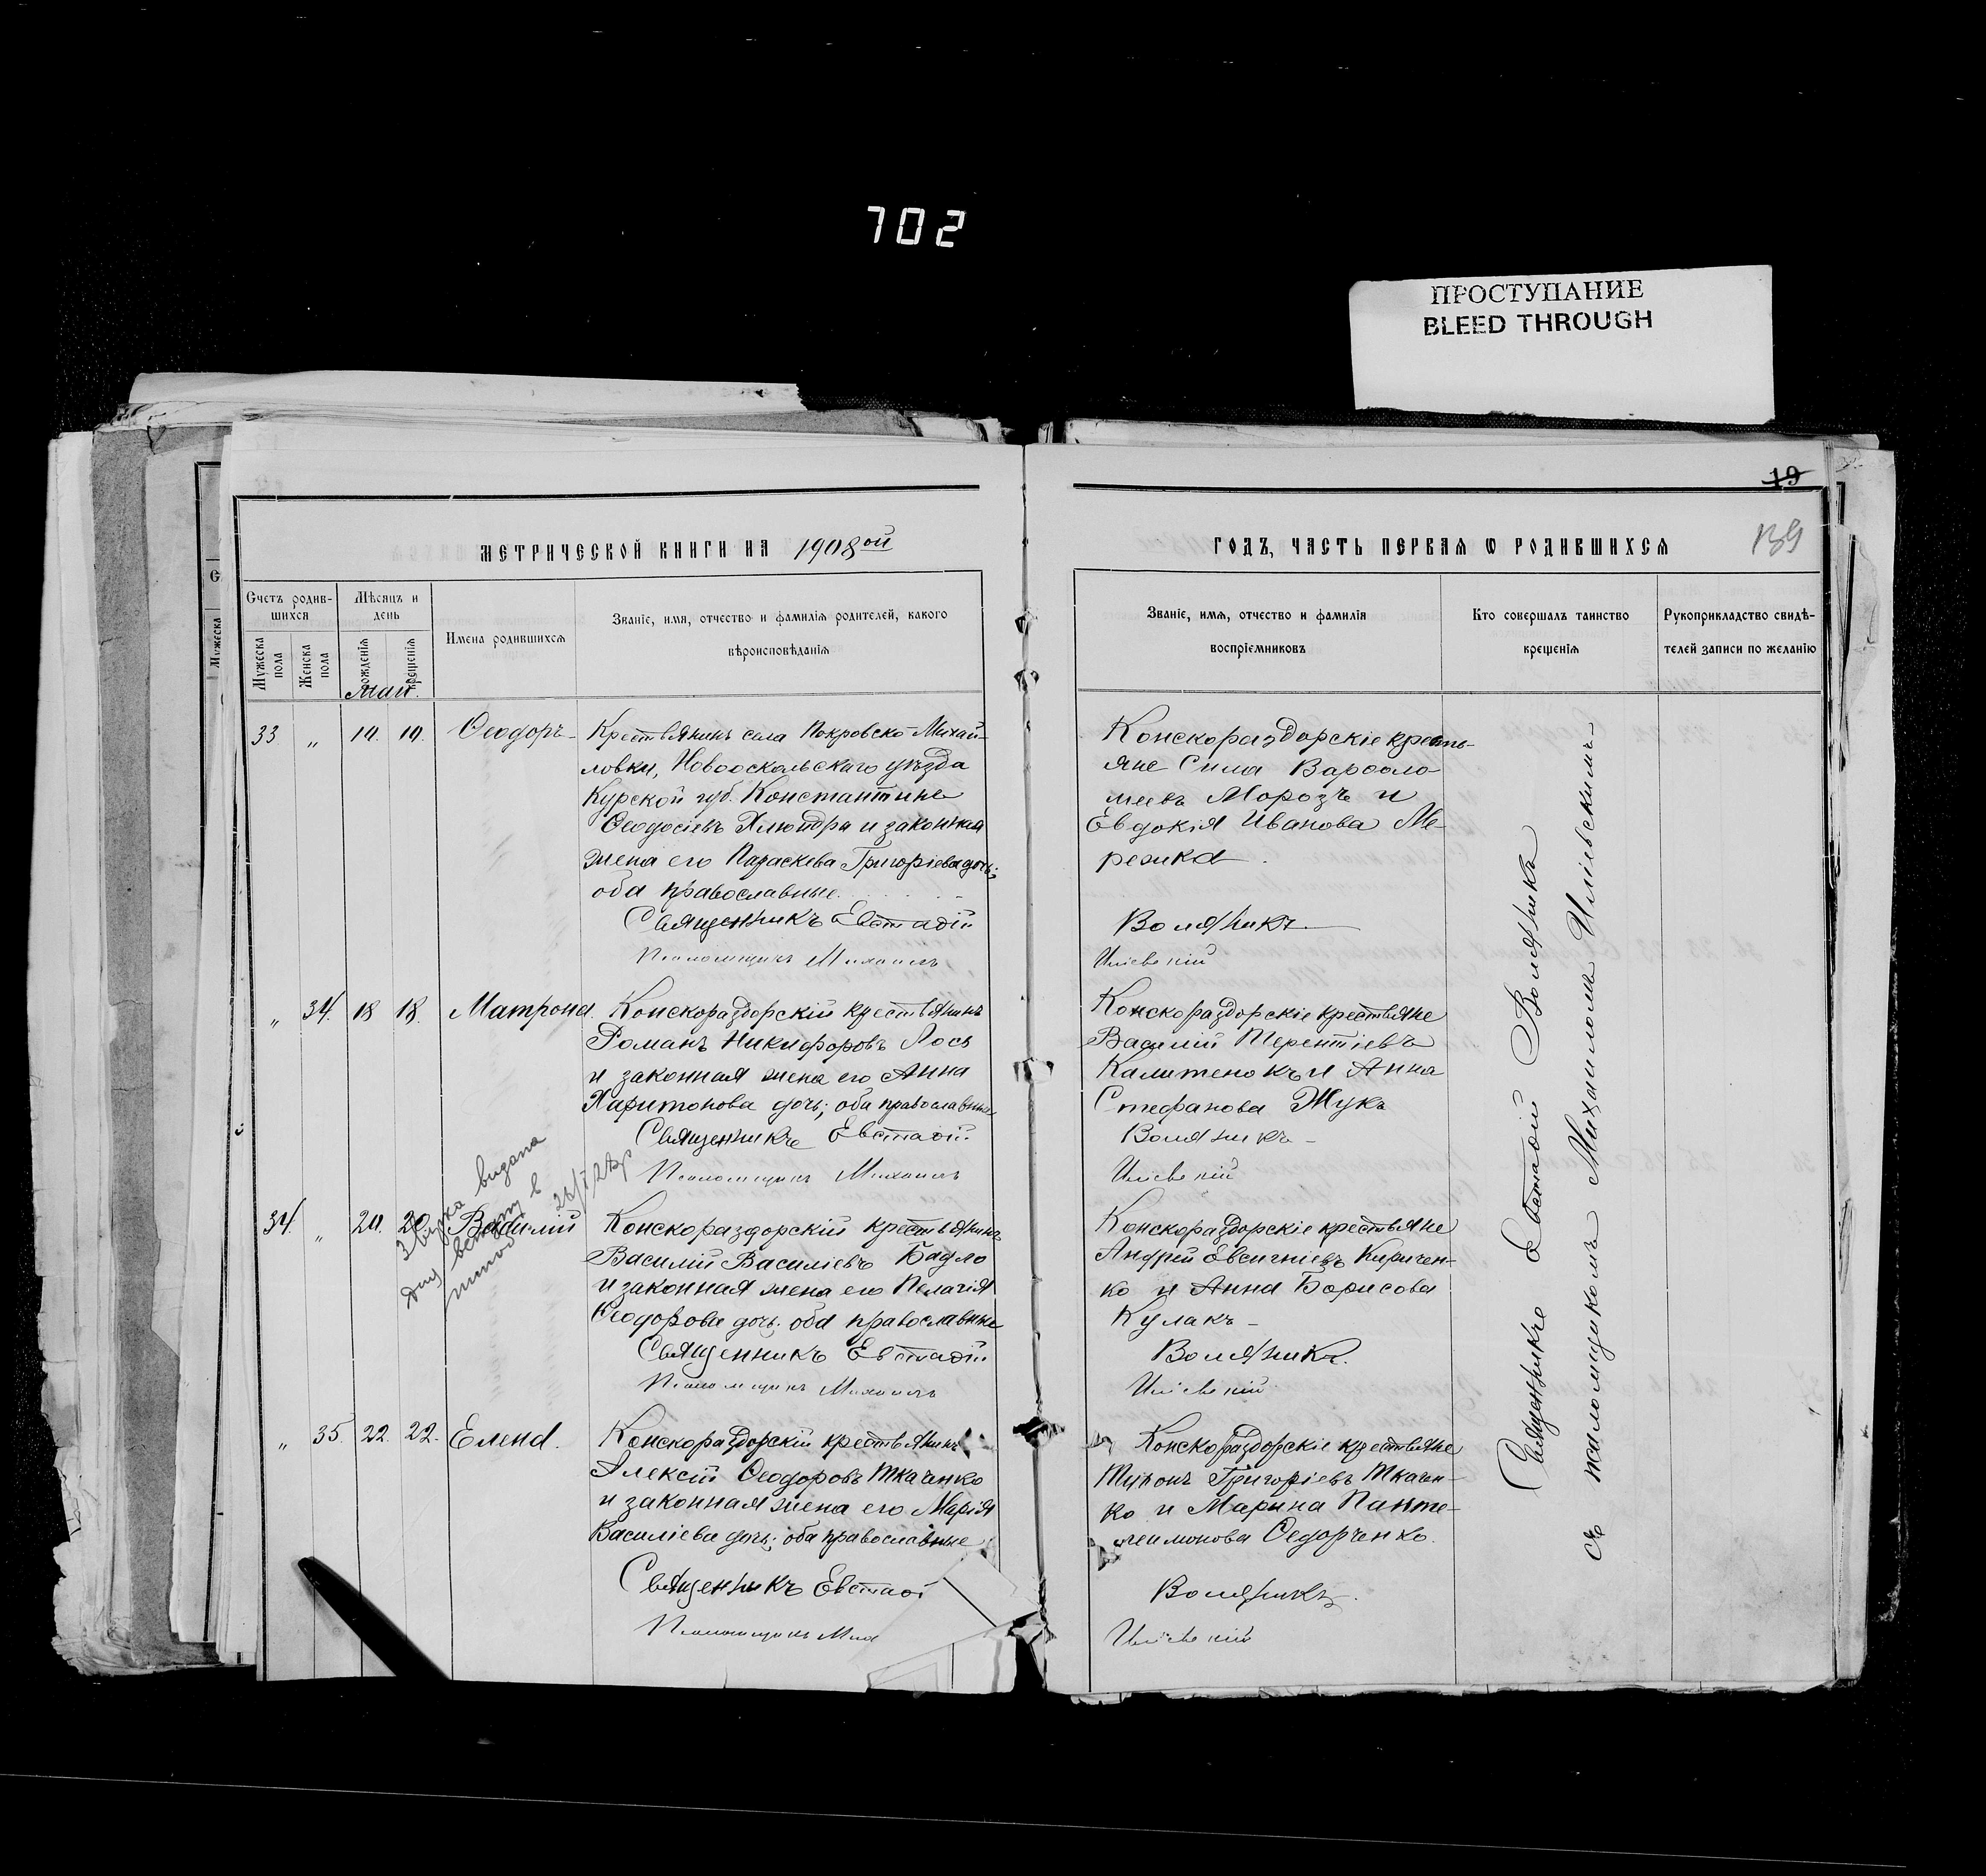 702
ПРОСТУПАНИЕ
BLEED THROUGH
19
139
МЕТРИЧЕСКОЙ КНИГИ НА 1908ой
ГОДЪ, ЧАСТЬ ПЕРВАЯ Ѡ РОДИВШИХСѦ
Счетъ родив-
шихся
Мѣсяцъ и
день
Мужеска пола
Женска пола
рожденія
крещенія
Имена родившихся
Званіе, имя, отчество и фамилія родителей, какого
вѣроисповѣданія
Званіе, имя, отчество и фамилія
воспріемниковъ
Кто совершалъ таинство
крещенія
Рукоприкладство свидѣ-
телей записи по желанію
Май.
33 " 14. 14. Ѳеодоръ
Крестьянинъ села Покровско-Михай-
ловки, Новооскольскаго уѣзда
Курской губ. Константинъ
Ѳеодосіевъ и законная
жена его Параскева Григоріева дочь;
оба православные.
Священникъ Евстаѳій
Псаломщикъ Михаилъ
Конскораздорскіе кресть-
яне Сила Варѳоло-
меевъ Морозъ и
Евдокія Иванова Ме-
режка.
Воляникъ
Иліевскій
" 34. 18 18. Матрона.
Конскораздорскій крестьянинъ
Романъ Никифоровъ Лось
и законная жена его Анна
Харитонова дочь; оба православные
Священникъ Евстаѳій.
Псаломщикъ Михаилъ
Конскораздорскіе крестьяне
Василій Терентіевъ
Калитенокъ и Анна
Стефанова Жукъ
Воляникъ
Иліевскій
34. " 20. 20. Василій
Звірка видана
для вступу в
26/I 28р
Конскораздорскій крестьянинъ
Василій Василіевъ Бадло
и законная жена его Пелагія
Ѳеодорова дочь; оба православные
Священникъ Евстаѳій
Псаломщикъ Михаилъ
Конскораздорскіе крестьяне
Андрей Евсигніевъ Киричен-
ко и Анна Борисова
Кулакъ
Воляникъ.
Иліевскій
" 35. 22. 22. Елена.
Конскораздорскій крестьянинъ
Алексій Ѳеодоровъ Ткаченко
и законная жена его Марія
Василіева дочь; оба православные
Священникъ Евстаѳі
Псаломщикъ Мих
Конскораздорскіе крестьяне
Григоріевъ Ткачен-
ко и Марина Панте-
леимонова Ѳедорченко.
Воляникъ.
Иліевскій
Священникъ Евстаѳій Воляникъ
съ псаломщикомъ Михаиломъ Иліевскимъ